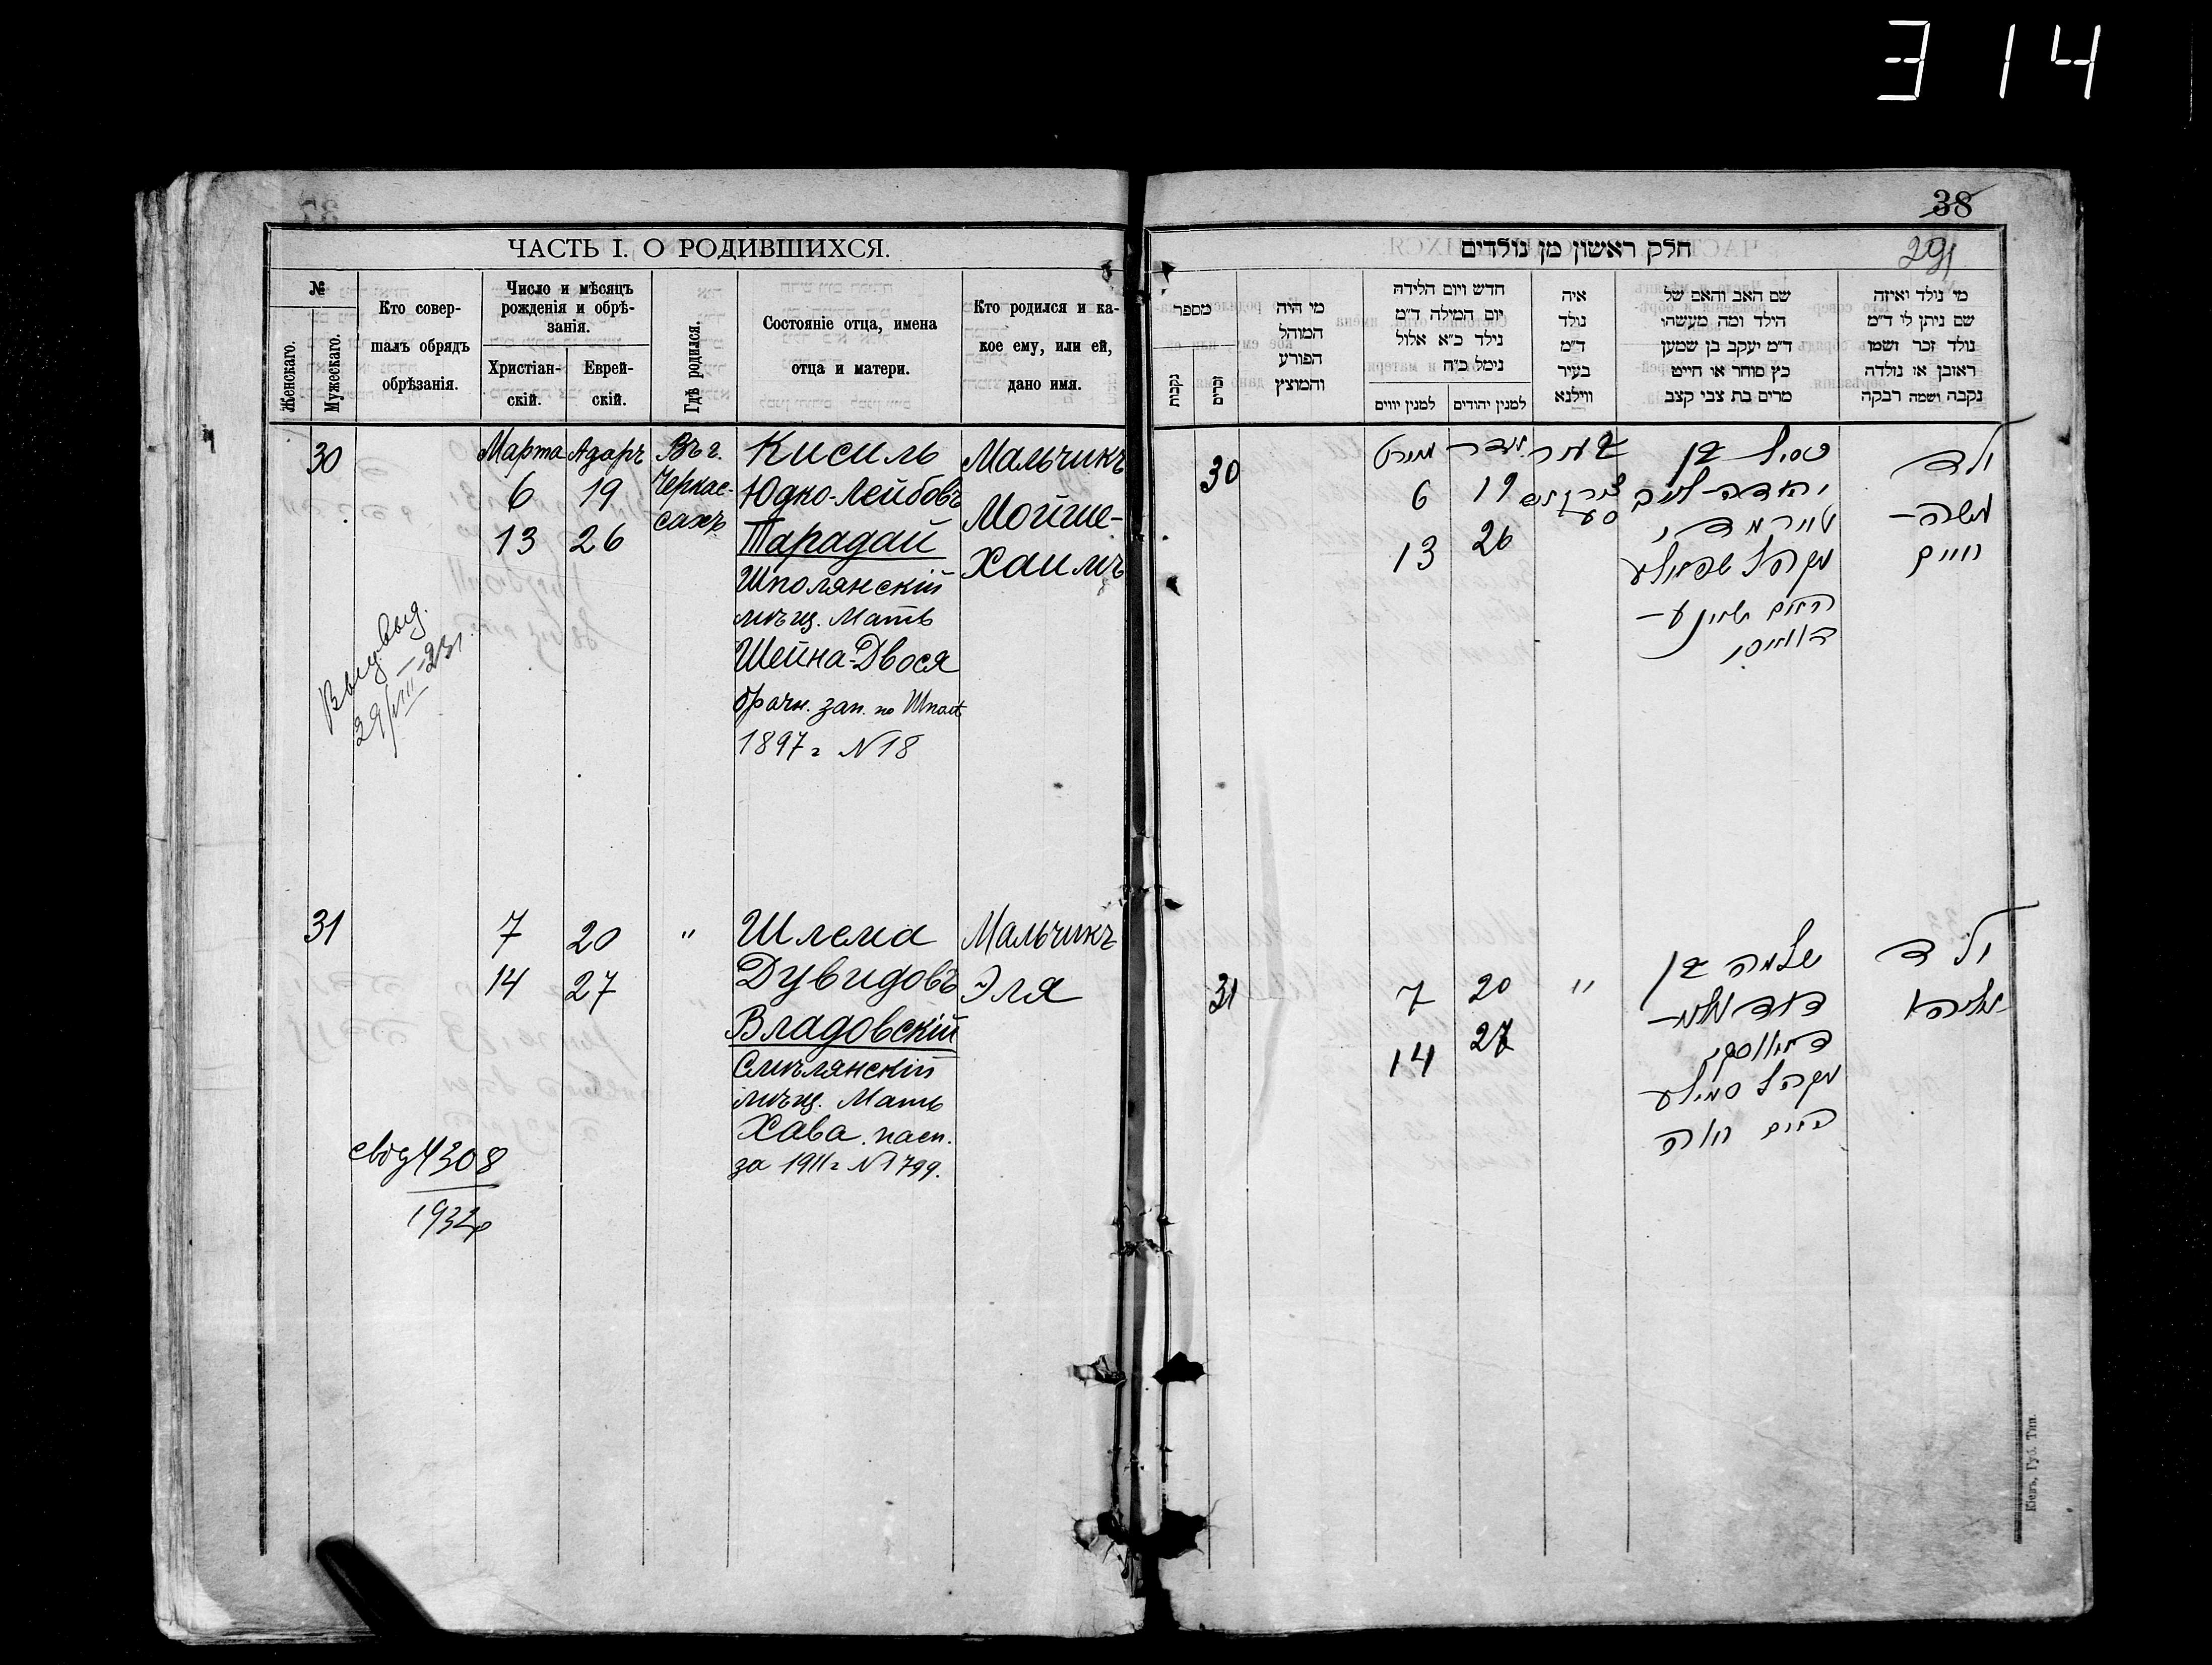 314
ЧАСТЬ I. О РОДИВШИХСЯ.
№
Женскаго.
Мужескаго.
Кто совер-
шалъ обрядъ
обрѣзанія.
Число и мѣсяцъ
рожденія и обрѣ-
занія.
Христіан-
скій.
Еврей-
скій.
Гдѣ родился.
Состояніе отца, имена
отца и матери.
Кто родился и ка-
кое ему, или ей,
дано имя.
30
Марта
6
13
Адаръ
19
26
Въ г.
Черкас-
сахъ
Кисиль
Юдко-Лейбовъ
Тарадай
Шполянскій
мѣщ. Мать
Шейна-Двося
брачн. зап. по Шпол
1897 г N 18
Мальчикъ
Мойше-
Хаимъ
31
7
14
20
27
"
Шлема
Дувидовъ
Владовскій
Смѣлянскій
мѣщ. Мать
Хава. пасп.
за 1911 г N 1799.
Мальчикъ
Эля
4308
1932р
38
291
חלק ראשון מן נולדים
מי נולד ואיזה
שם ניתן לו ד"מ
נולד זכר ושמו
ראובן או נולדה
נקבה ושמה רבקה
שם האב והאם של
הילד ומה מעשהו
ד"מ יעקב בן שמעון
כץ סוחר או חייט
מרים בת צבי קצב
איה
נולד
ד"מ
בעיר
ווילנא
חדש ויום הלידה
יום המילה ד"מ
נילד כ"א אלול
נימל כ"ח
למנין יהודים
למנין יוונים
מי היה
המוהל
הפורע
והמוצץ
מספר
זכרים
נקבות
ילד
משה-
חיים
כסיל בן
יהודה-ליב
טאראדײ
מקהל שפאלע
האם שיינע-
דוואסי
בעיר
אדר
19
26
מארט
6
13
30
ילד
אליהו
שלמה בן
דוד
מקהל סמילע
האם חוה
"
20
27
7
14
31
Кіевъ, Губ. Тип.